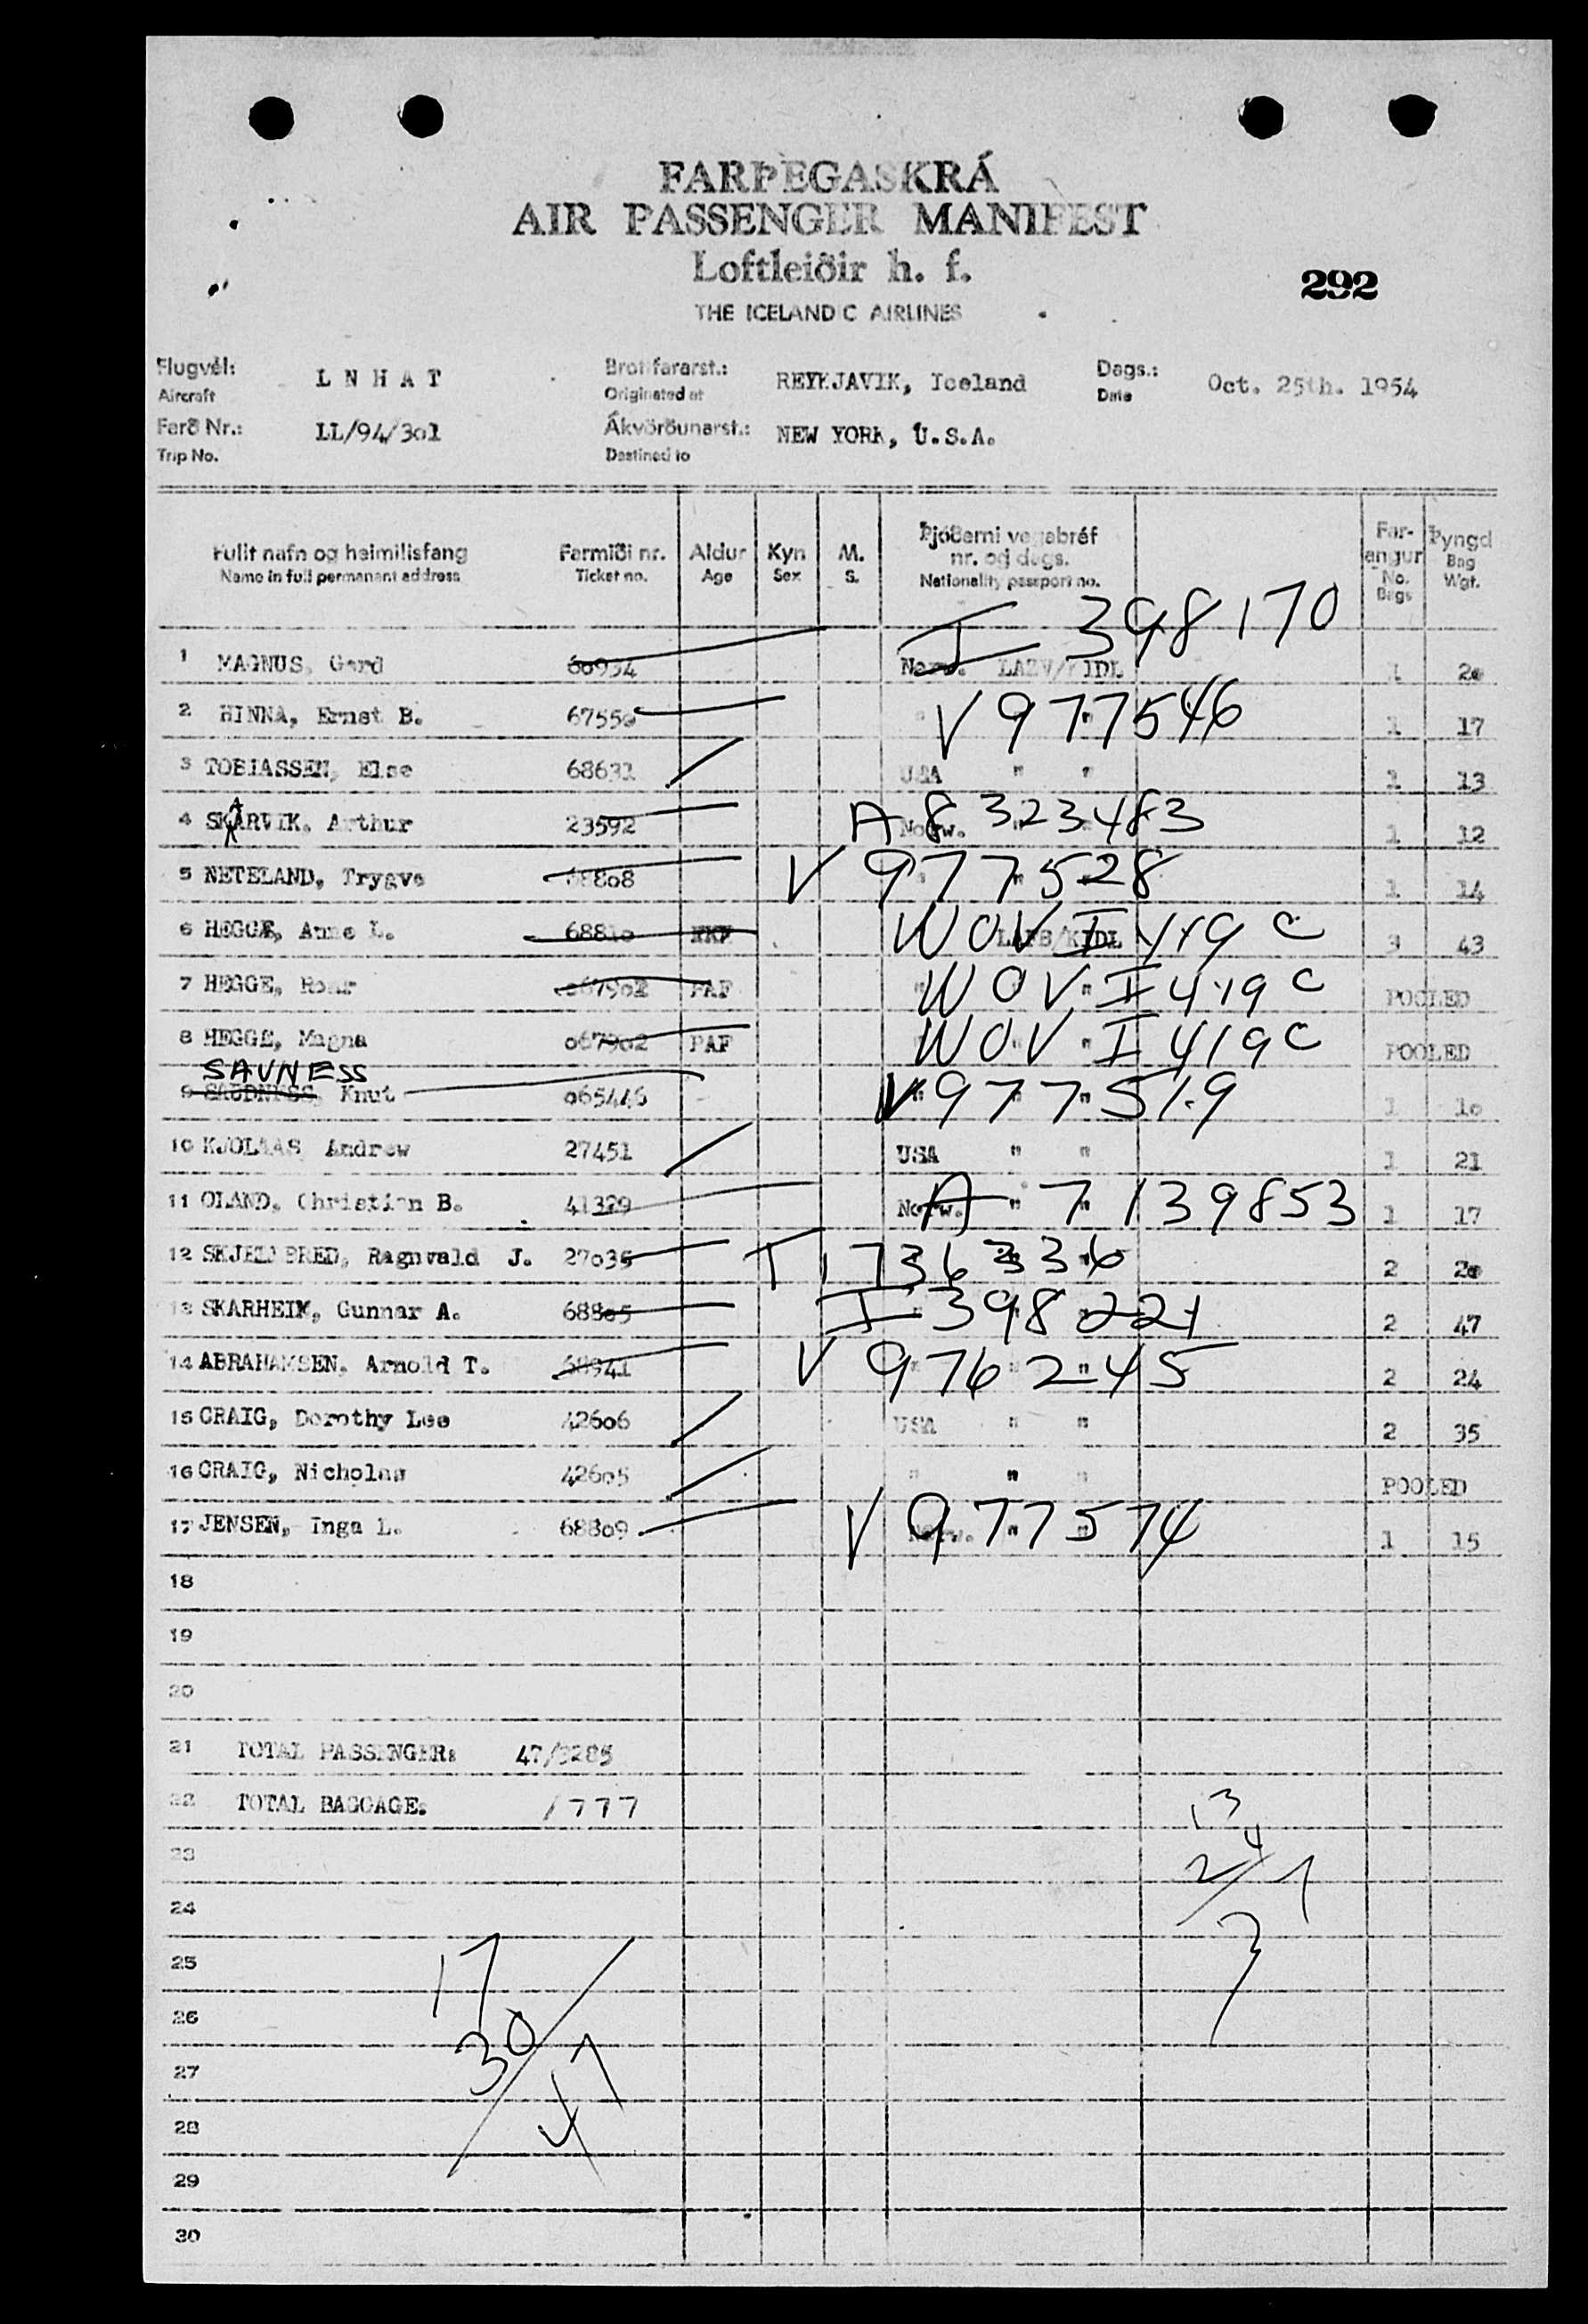 FARÞEGASKRÁ
AIR PASSENGER MANIFEST
Loftleiðir h. f.
292
THE ICELANDIC AIRLINES
Flugvél: L N H A T Brottfararst.: REYKJAVIK, Iceland Dags.: Oct. 25th. 1954
Aircraft Originated at Date
Ferð Nr.: LL/94/301 Ákvörðunarst.: NEW YORK, U.S.A.
Trip No. Destined to
Fullt nafn og heimilisfang Farmiði nr. Aldur Kyn M. Þjóðerni vegabréf nr. og dags. Far-angur Þyngd
Name in full permanent address Ticket no. Age Sex S. Nationality passport no. No. Bags Bag Wgt.
I 398170
1 MAGNUS, Gerd 60934 Norw. LAZV/KIDL 1 20
2 HINNA, Ernst B. 67550 " V 977546 " 1 17
3 TOBIASSEN, Else 68631 USA " " 1 13
4 SKARVIK. Arthur 23592 Norw. A 8 323483 1 12
5 NETELAND, Trygve 68808 V 977528 1 14
6 HEGGE, Anne L. 68810 LAFB/KIDL WOV I 419 C 3 43
7 HEGGE, Roar 067902 PAF " WOV " I 419 C POOLED
8 HEGGE, Magna 067902 PAF WOV " I 419 C POOLED
SAVNESS
9 SAUDNESS, Knut 065446 V 977519 1 10
10 KJOLAAS Andrew 27451 USA " " 1 21
11 OLAND, Christian B. 41329 Norw. A " 7139853 1 17
12 SKJELDBRED, Ragnvald J. 27035 T 1736336 2 20
13 SKARHEIM, Gunnar A. 68805 I 398221 2 47
14 ABRAHAMSEN, Arnold T. 68941 V 976245 2 24
15 CRAIG, Dorothy Lee 42606 USA " " 2 35
16 CRAIG, Nicholas 42605 " " " POOLED
17 JENSEN, Inga L. 68809 Norw. V 977574 1 15
18
19
20
21 TOTAL PASSENGER: 47/3285
22 TOTAL BAGGAGE. /777
13
4
23
2/1
24
7
25
17
26
30
27
47
28
29
30